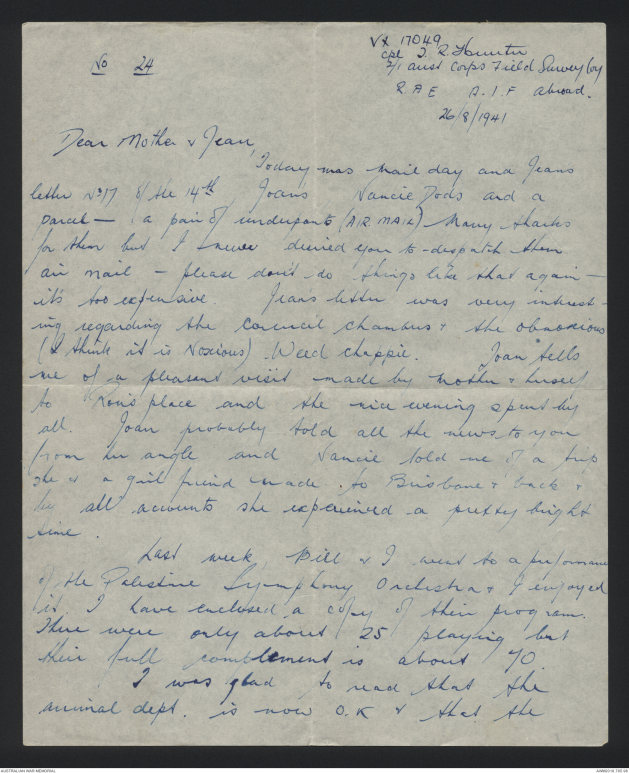 No 24
VX 17049
Cpl J. R. Hunter
2/1 Aust Corps Field Survey Coy
R A E A. I. F Abroad.
26/8/1941
Dear Mother & Jean,
Today was mail day and Jeans
letter No 17 of the 14th Joans Nancie Dods and a
parcel — a pair of underpants (AIR MAIL) Many thanks
for them but I never desired you to despatch them
air mail — please don't do things like that again —
it's too expensive. Jean's letter was very interest-
ing regarding the council chambers & the obnoxious
(I think it is Noxious) Weed chappie. Joan tells
me of a pleasant visit made by Mother & herself
to Ron's place and the nice evening spent by
all. Joan probably told all the news to you
from her angle and Nancie told me of a trip
she & a girl friend made to Brisbane & back &
by all accounts she experienced a pretty bright
time.
Last week Bill & I went to a performance
of the Palestine Symphony Orchestra & I enjoyed
it. I have enclosed a copy of their program.
There were only about 25 playing but
their full complement is about 70.
I was glad to read that the
animal dept. is now O.K & that the
AUSTRALIAN WAR MEMORIAL